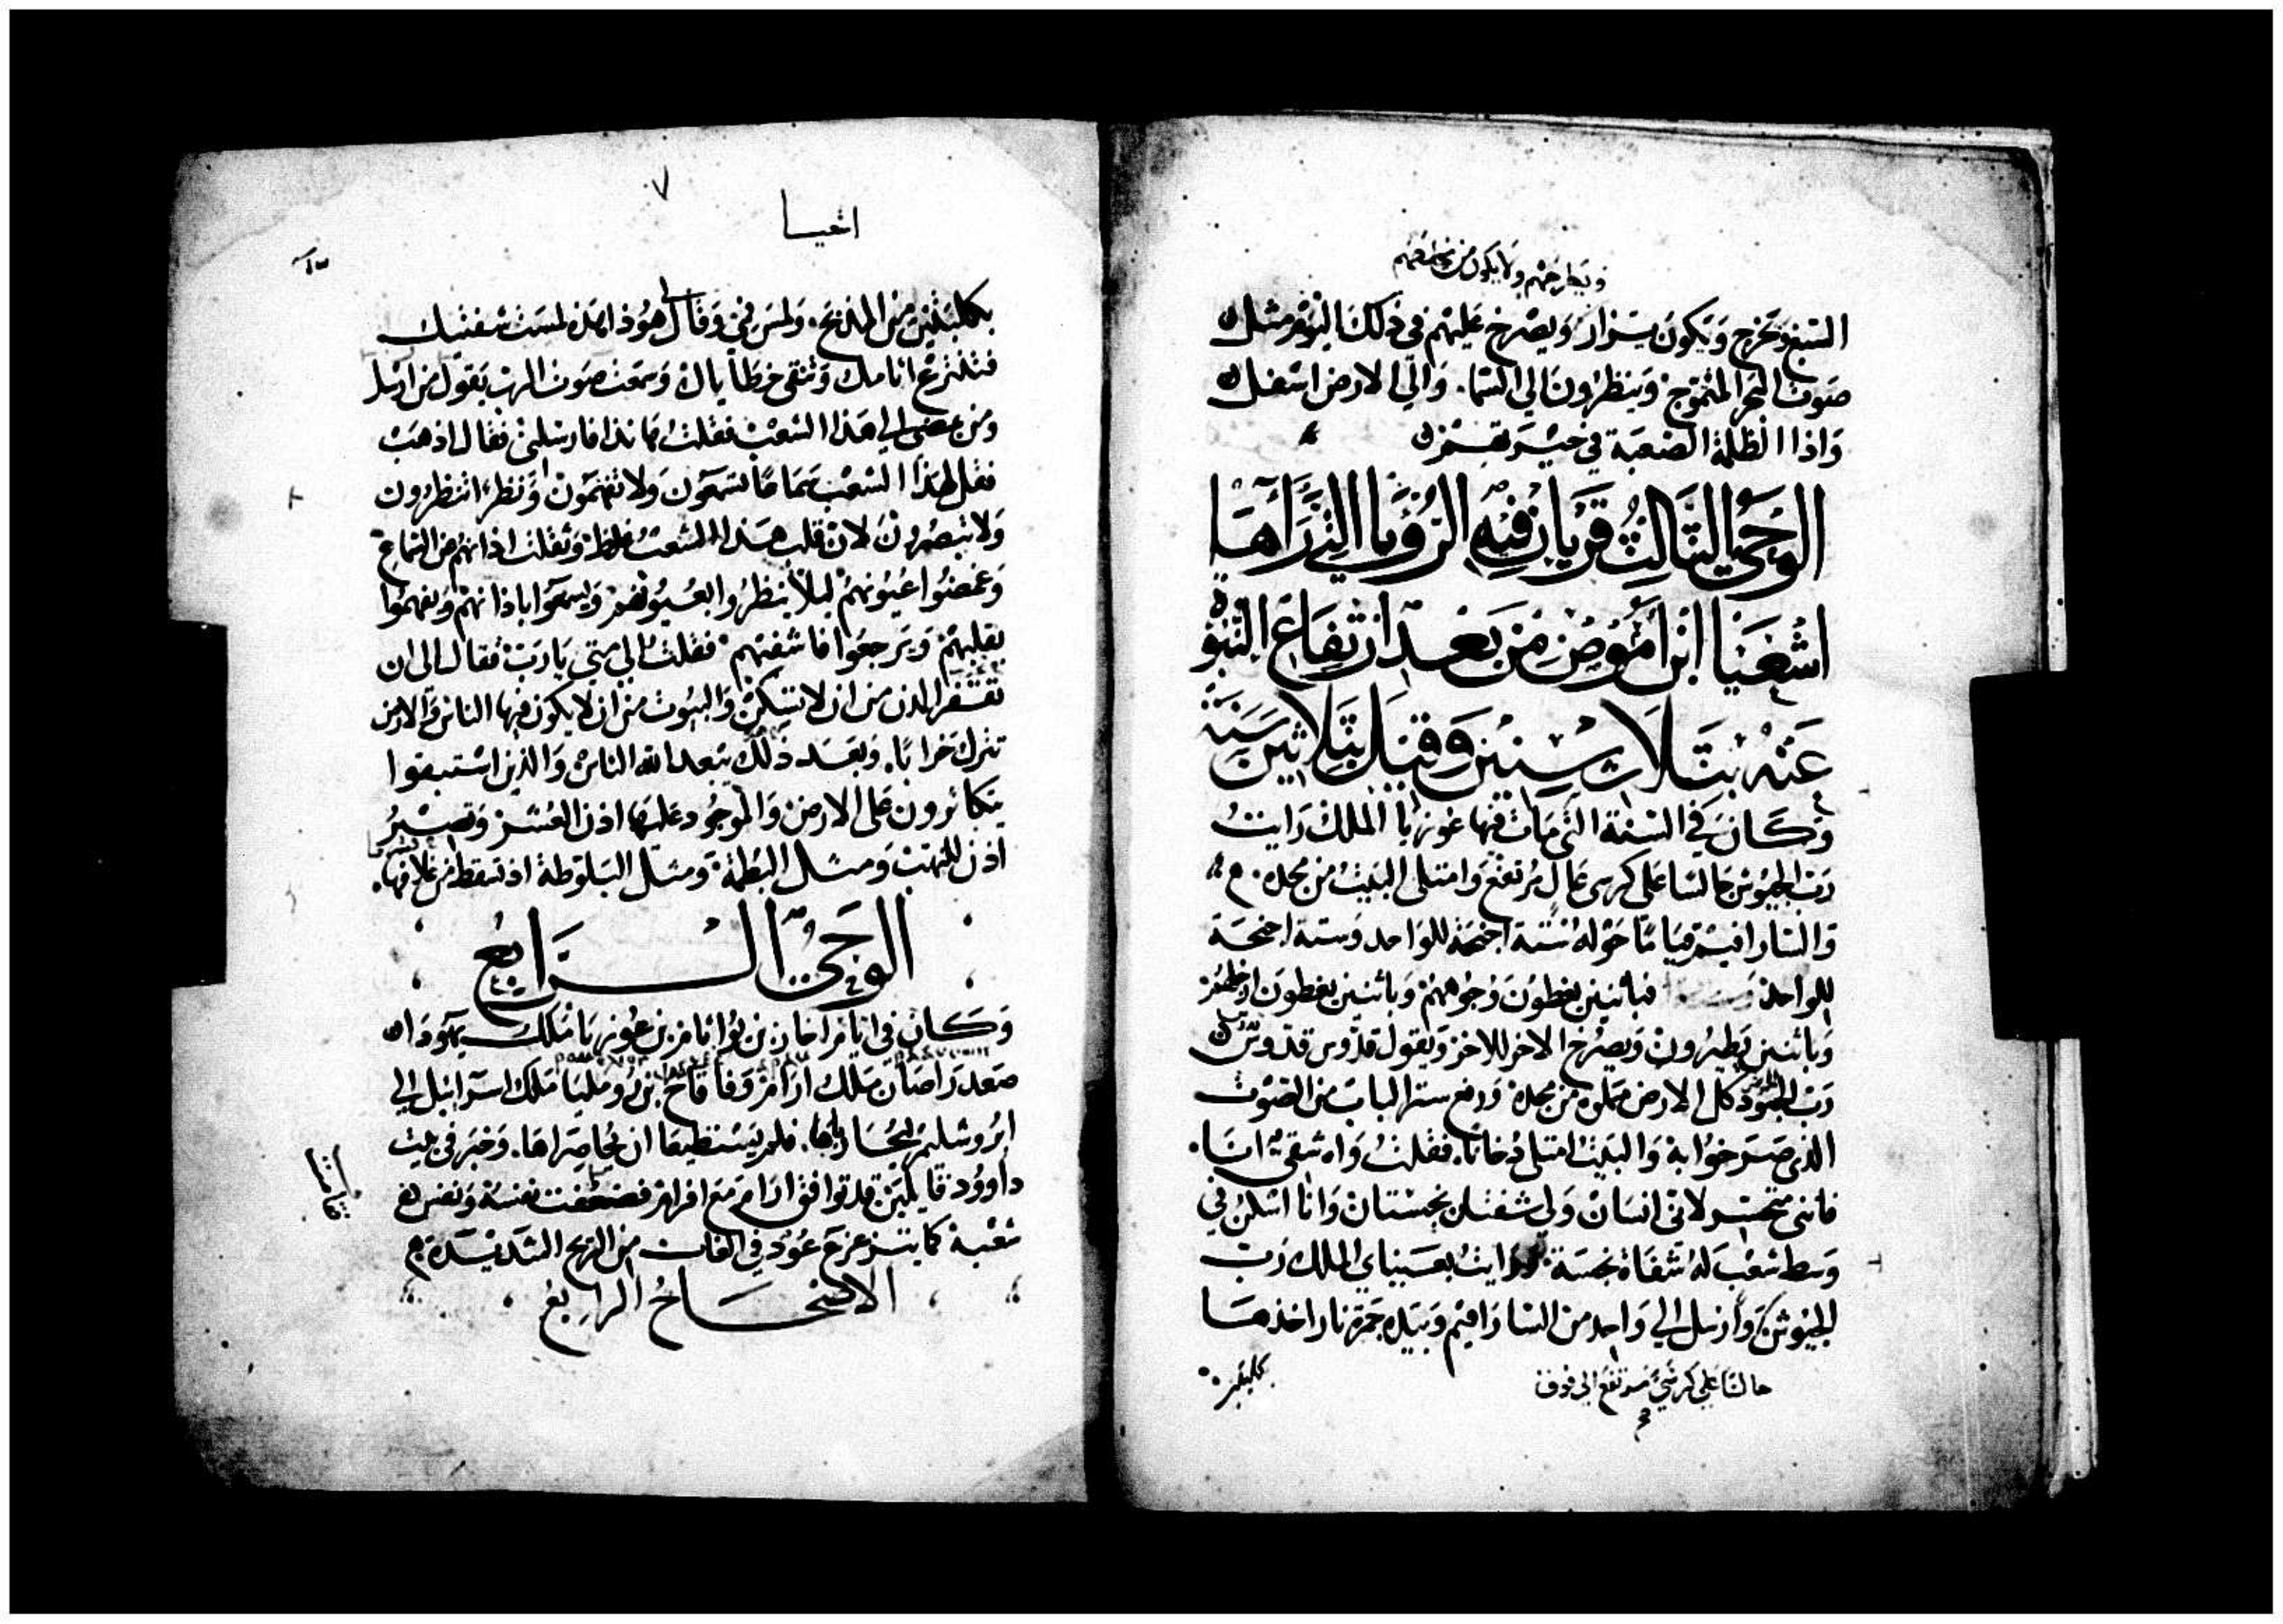 ويطرحهم ولا يكون من يخلصهم
السبع وتخرج ويكون يزار ويصرخ عليهم في ذلك اليوم مثل
صوت البحر المتموج وينظرون الي السما. والي الارض اسفل
واذا الظلمة الصعبة في حيرتهم
الوحي الثالث قريان فيه الرؤيا الذي راها
اشعيا ابن اموص من بعد ارتفاع النبوة
عنه بثلاث سنين وقبل بثلاثين سنة
وكان في السنة التي مات فيها عوزيا الملك رايت
رب الجيوش جالسا على كرسي عال مرتفع وامتلى البيت من مجده.
والسارافيم قياما حوله ستة اجنحة للواحد وستة اجنحة
للواحد فباثنين يغطون وجوههم وباثنين يغطون ارجلهم
وباثنين يطيرون ويصرخ الاخر للاخر ويقول قدوس قدوس
رب الجنود كل الارض مملوة من مجده ورفع ستر الباب من الصوت
الذي صرخوا به والبيت امتلى دخانا. فقلت واه شقي انا.
فانني متحسر لاني انسان ولي شفتان نجستان وانا اسكن في
وسط شعب له شفاة نجسة ورايت بعيني الملك رب
الجيوش وارسل الي واحد من السارافيم وبيده جمرة نار اخذها
جالسا على كرسي مرتفع الى فوق
بكلبتين
٧
اشعيا
بكلبتين من المذبح. ولمس فمي وقال هوذا هذه لمست شفتيك
فتنتزع اثامك وتنقى خطاياك وسمعت صوت الرب يقول من ارسل
ومن يمضي الي هذا الشعب فقلت هانذا فارسلني فقال اذهب
فقل لهذا الشعب سماعا تسمعون ولا تفهمون ونظرا تنظرون
ولا تبصرون لان قلب هذا الشعب غلظ وثقلت اذانهم من السماع
وغمضوا عيونهم ليلا ينظروا بعيونهم ويسمعوا باذانهم ويفهموا
بقلبهم ويرجعوا فاشفيهم فقلت الي متي يارب فقال الى ان
تقفر المدن من ان لا تسكن والبيوت من ان لا يكون فيها الناس والارض
تترك خرابا. وبعد ذلك يبعد الله الناس والذين استبقوا
يتكاثرون على الارض والموجود عليها اذن العشر وتصير
اذن للنهب ومثل البطمة ومثل البلوطة اذ تسقط من غلافها.
الوحي الرابع
وكان في ايام احاز بن يواثام بن عوزيا ملك يهودا
صعد راصان ملك ارام وفاقاح بن روميليا ملك اسرائيل الي
اورشليم ليحارباها. فلم يستطيعا ان يحاصراها. وخبر في بيت
داوود قايلين قد توافق ارام مع افرام فضعفت نفسه ونفس
شعبه كما يتزعزع عود في الغاب من الريح الشديدة
الاصحاح الرابع